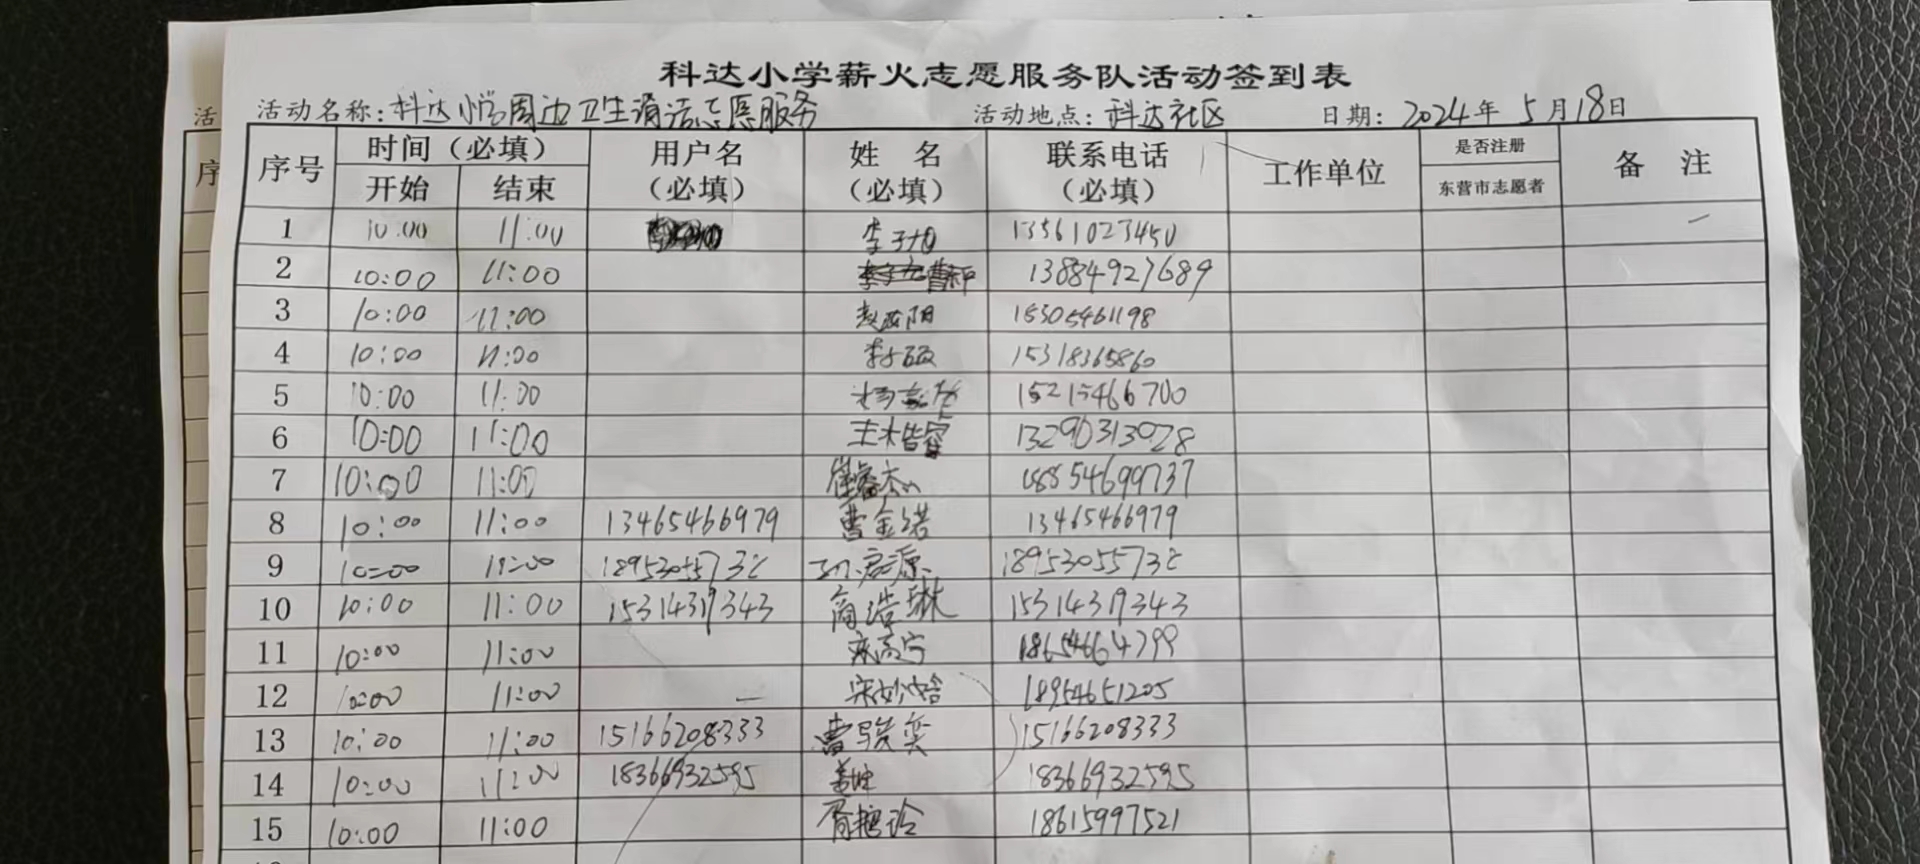 科达小学薪火志愿服务队活动签到表
活动名称：科达小学周边卫生清洁志愿服务 活动地点：科达社区 日期：2024年5月18日
序号 时间（必填） 用户名（必填） 姓 名（必填） 联系电话（必填） 工作单位 是否注册 备 注
开始 结束 东营市志愿者
1 10:00 11:00 李 13561023450
2 10:00 11:00 曹 13884927689
3 10:00 11:00 赵 阳 18305461198
4 10:00 11:00 李 15318365860
5 10:00 11:00 杨 15215466700
6 10:00 11:00 王木皆睿 13290313028
7 10:00 11:00 崔睿杰 18854699737
8 10:00 11:00 13465466979 曹金诺 13465466979
9 10:00 11:00 1895305573 启源 1895305573
10 10:00 11:00 15314319343 商浩琳 15314319343
11 10:00 11:00 高宁 18654664799
12 10:00 11:00 宋妙晗 18954651205
13 10:00 11:00 15166208333 曹骏奕 15166208333
14 10:00 11:00 18366932595 姜坤 18366932595
15 10:00 11:00 18615997521
活
序